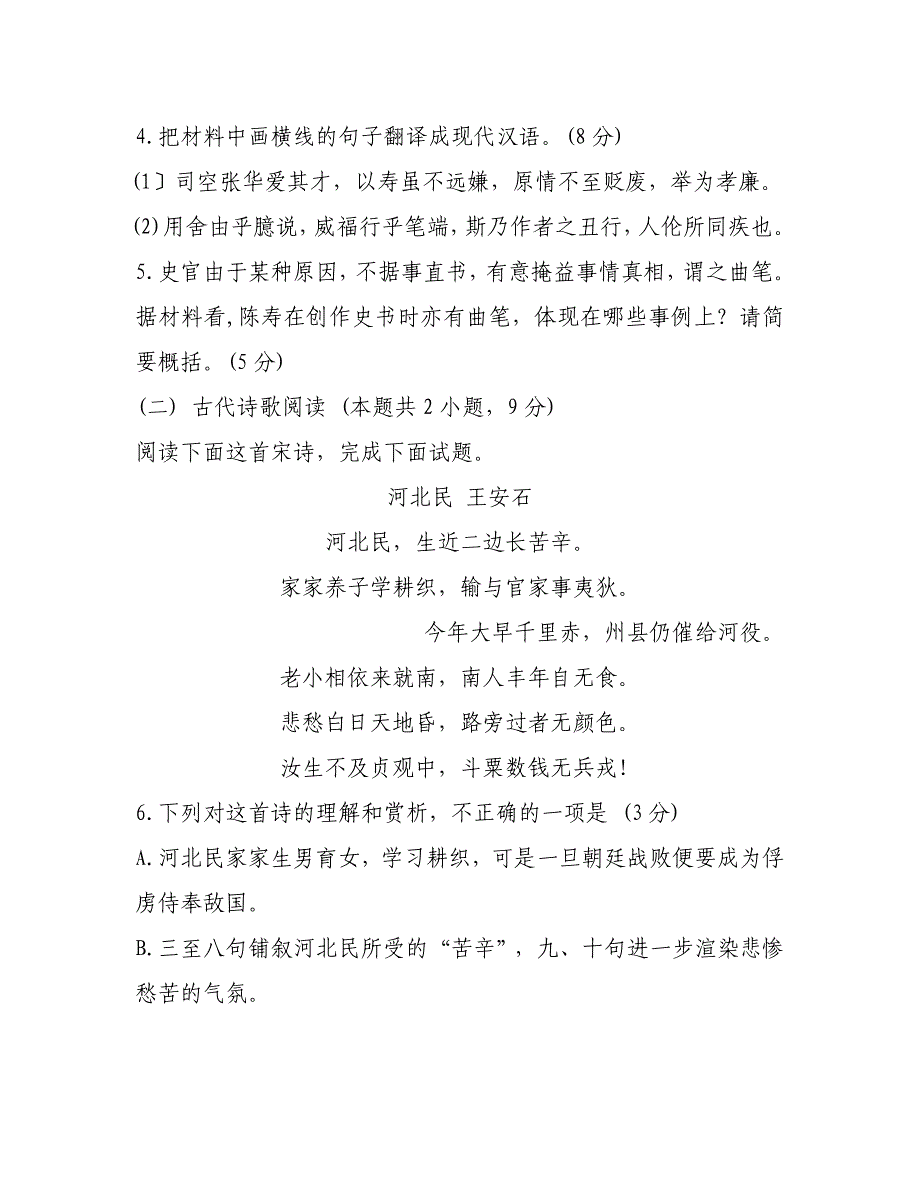 4.把材料中画横线的句子翻译成现代汉语。(8分)
(1〕司空张华爱其才，以寿虽不远嫌，原情不至贬废，举为孝廉。
(2)用舍由乎臆说，威福行乎笔端，斯乃作者之丑行，人伦所同疾也。
5.史官由于某种原因，不据事直书，有意掩益事情真相，谓之曲笔。
据材料看,陈寿在创作史书时亦有曲笔，体现在哪些事例上？请简
要概括。(5分)
(二) 古代诗歌阅读 (本题共2小题，9分)
阅读下面这首宋诗，完成下面试题。
河北民 王安石
河北民，生近二边长苦辛。
家家养子学耕织，输与官家事夷狄。
今年大旱千里赤，州县仍催给河役。
老小相依来就南，南人丰年自无食。
悲愁白日天地昏，路旁过者无颜色。
汝生不及贞观中，斗粟数钱无兵戎！
6.下列对这首诗的理解和赏析，不正确的一项是 (3分)
A.河北民家家生男育女，学习耕织，可是一旦朝廷战败便要成为俘
虏侍奉敌国。
B.三至八句铺叙河北民所受的“苦辛”，九、十句进一步渲染悲惨
愁苦的气氛。